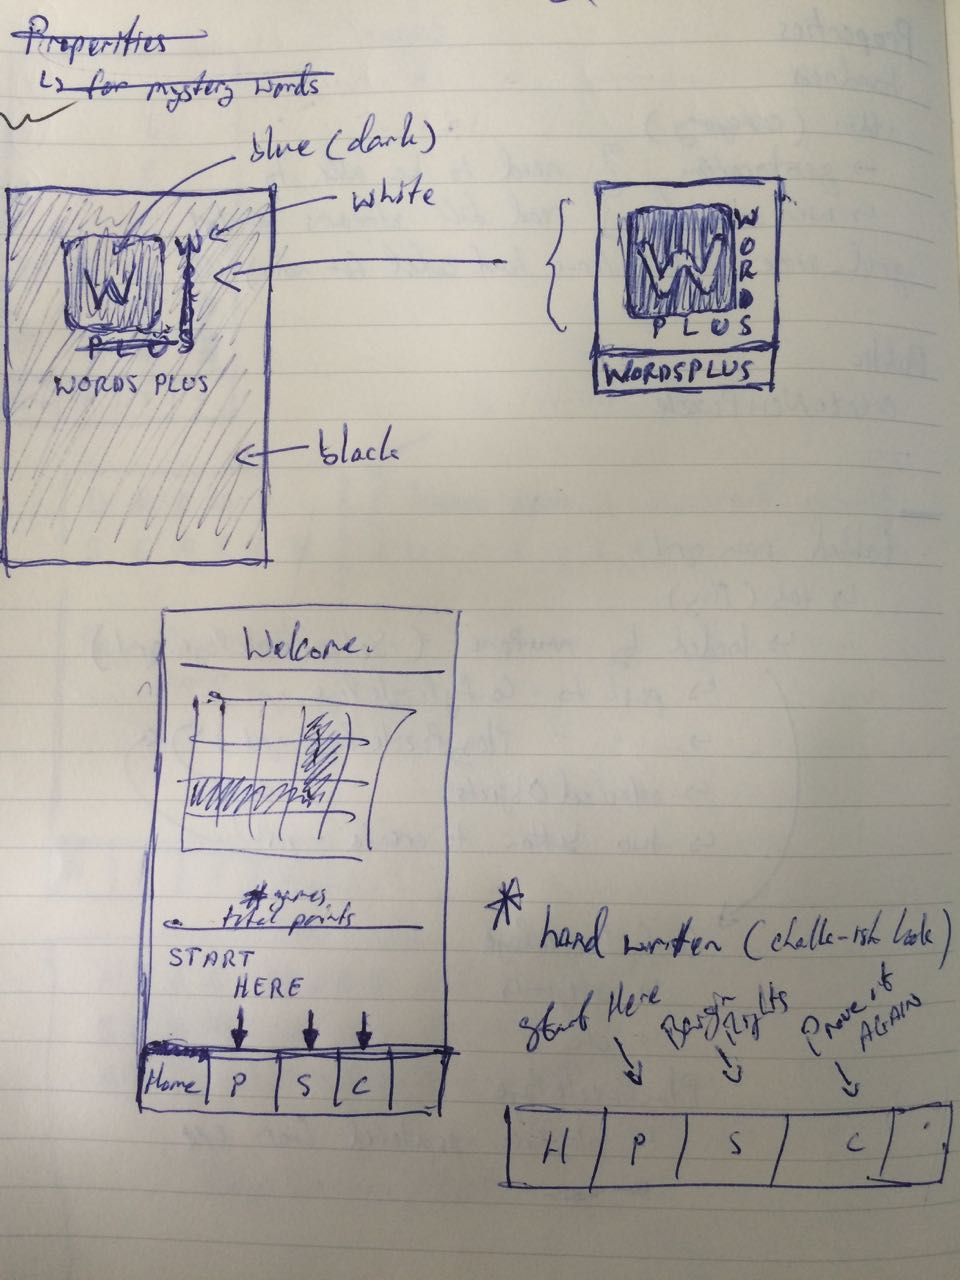 Properities
↳ for mystery words
blue (dark)
white
W
WORDS
PLUS
WORDS PLUS
black
W
WORDS
PLUS
WORDSPLUS
Welcome.
# games
total points
START
HERE
Home P S C
* hand written (chalk-ish look)
Start Here
Rights
Prove it
AGAIN
H P S C